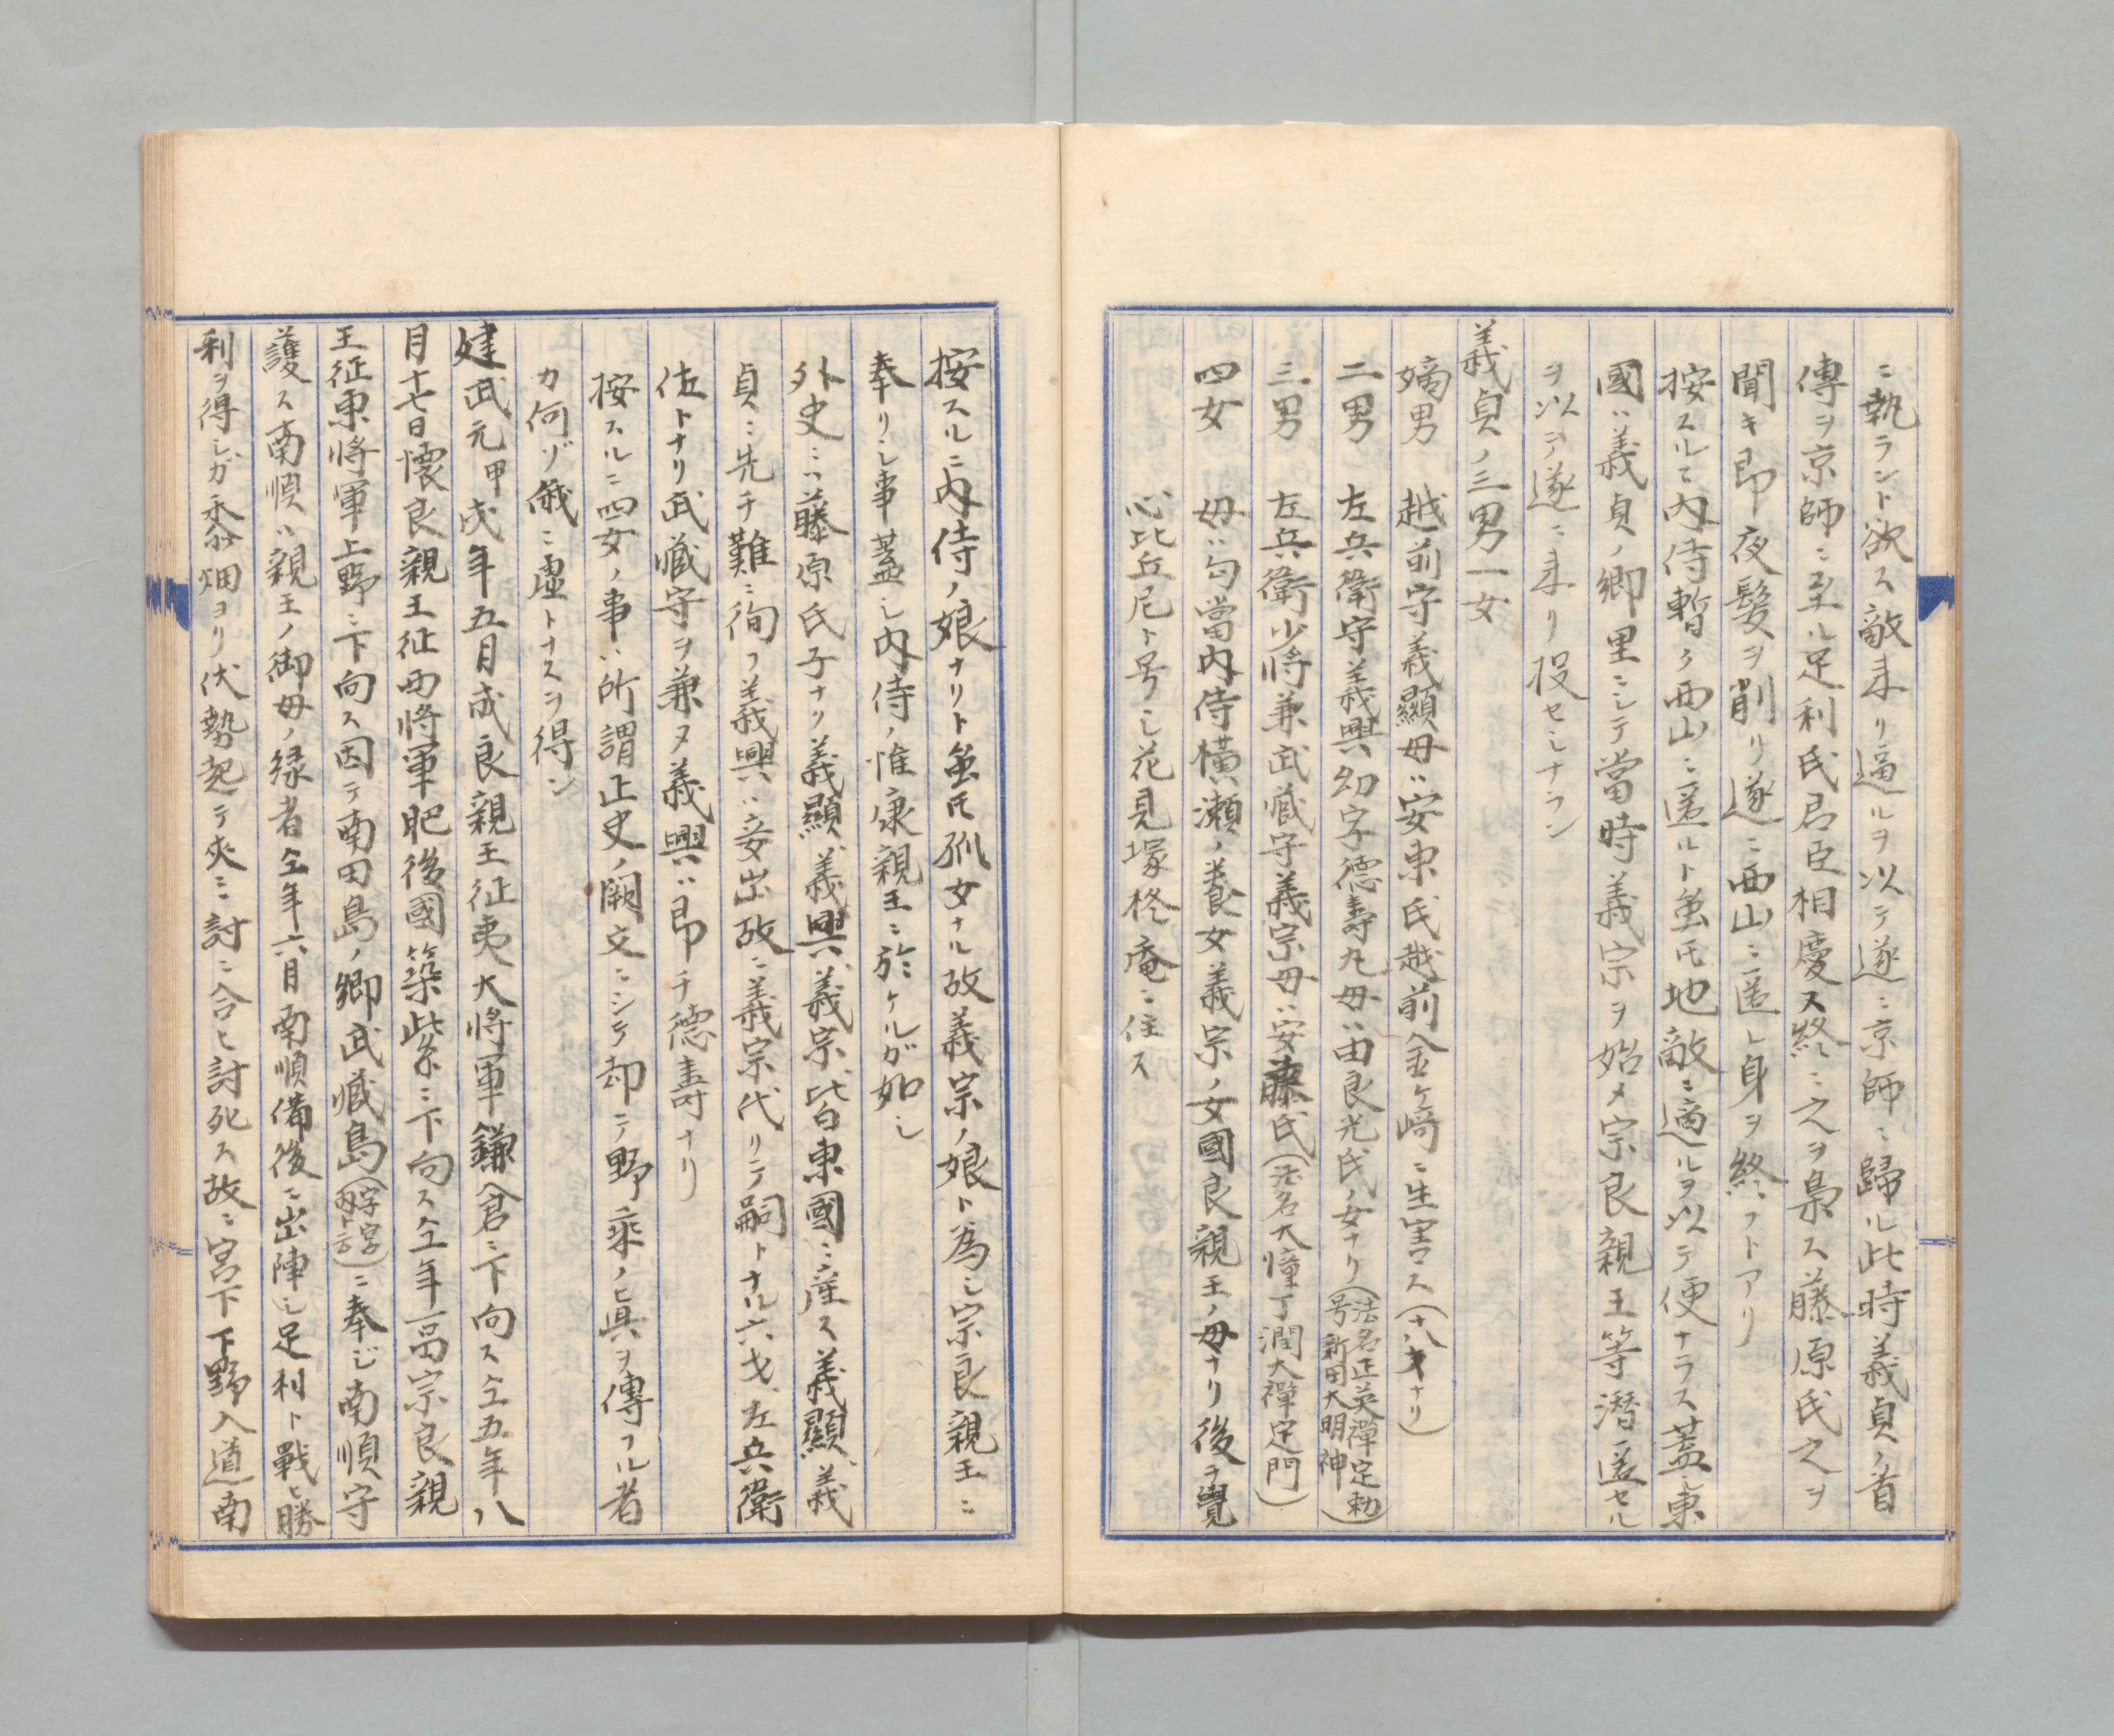 ニ執ラント欲ス敵来リ逼ルヲ以テ遂ニ京師ニ歸ル此時義貞ノ首
傳ヲ京師ニ至ル足利氏君臣相慶ス終ニ之ヲ梟ス藤原氏之ヲ
聞キ即夜髪ヲ削リ遂ニ西山ニ匿レ身ヲ終フトアリ
按スルニ内侍暫ク西山ニ匿ルト虽氏地敵ニ適ルヲ以テ便ナラス蓋シ東
國ハ義貞ノ郷里ニシテ當時義宗ヲ始メ宗良親王等潜匿セル
ヲ以テ遂ニ来リ投セシナラン
義貞ノ三男一女
嫡男 越前守義顯母ハ安東氏越前金ケ﨑ニ生害ス(十八才ナリ)
二男 左兵衛守義興幼字德壽丸母ハ由良光氏ノ女ナリ(法名正英禪定勅号新田大明神)
三男 左兵衛少将兼武臧守義宗母ハ安藤氏(法名大憧丁潤大禪定門)
四女 母ハ勾當内侍横瀬ノ養女義宗ノ女國良親王ノ母ナリ後チ覺
心比丘尼ト号シ花見塚柊庵ニ住ス
按スルニ内侍ノ娘ナリト虽氏孤女ナル故義宗ノ娘ト為シ宗良親王ニ
奉リシ事蓋シ内侍ノ惟康親王ニ於ケルガ如シ
外史ニハ藤原氏子ナリ義顯義興義宗皆東國ニ産ス義顯義
貞ニ先チ難ニ徇フ義興ハ妾出故ニ義宗代リテ嗣トナル六才左兵衛
佐トナリ武臧守ヲ兼ヌ義興ハ即チ德壽ナリ
按スルニ四女ノ事ハ所謂正史ノ闕文ニシテ却テ野乘ノ眞ヲ傳フル者
カ何ゾ俄ニ虚トナスヲ得ン
建武元甲戌年五月成良親王征夷大将軍鎌倉ニ下向ス仝五年八
月十七日懐良親王征西将軍肥後國築紫ニ下向ス仝年冨宗良親
王征東将軍上野ニ下向ス因テ南田島ノ郷武臧島(字字両ト言)ニ奉ジ南順守
護ス南順ハ親王ノ御母ノ縁者仝年六月南順備後ニ出陣シ足利ト戰ヒ勝
利ヲ得シガ黍畑ヨリ伏勢起テ夾ミ討ニ合ヒ討死ス故ニ宮下下野入道南